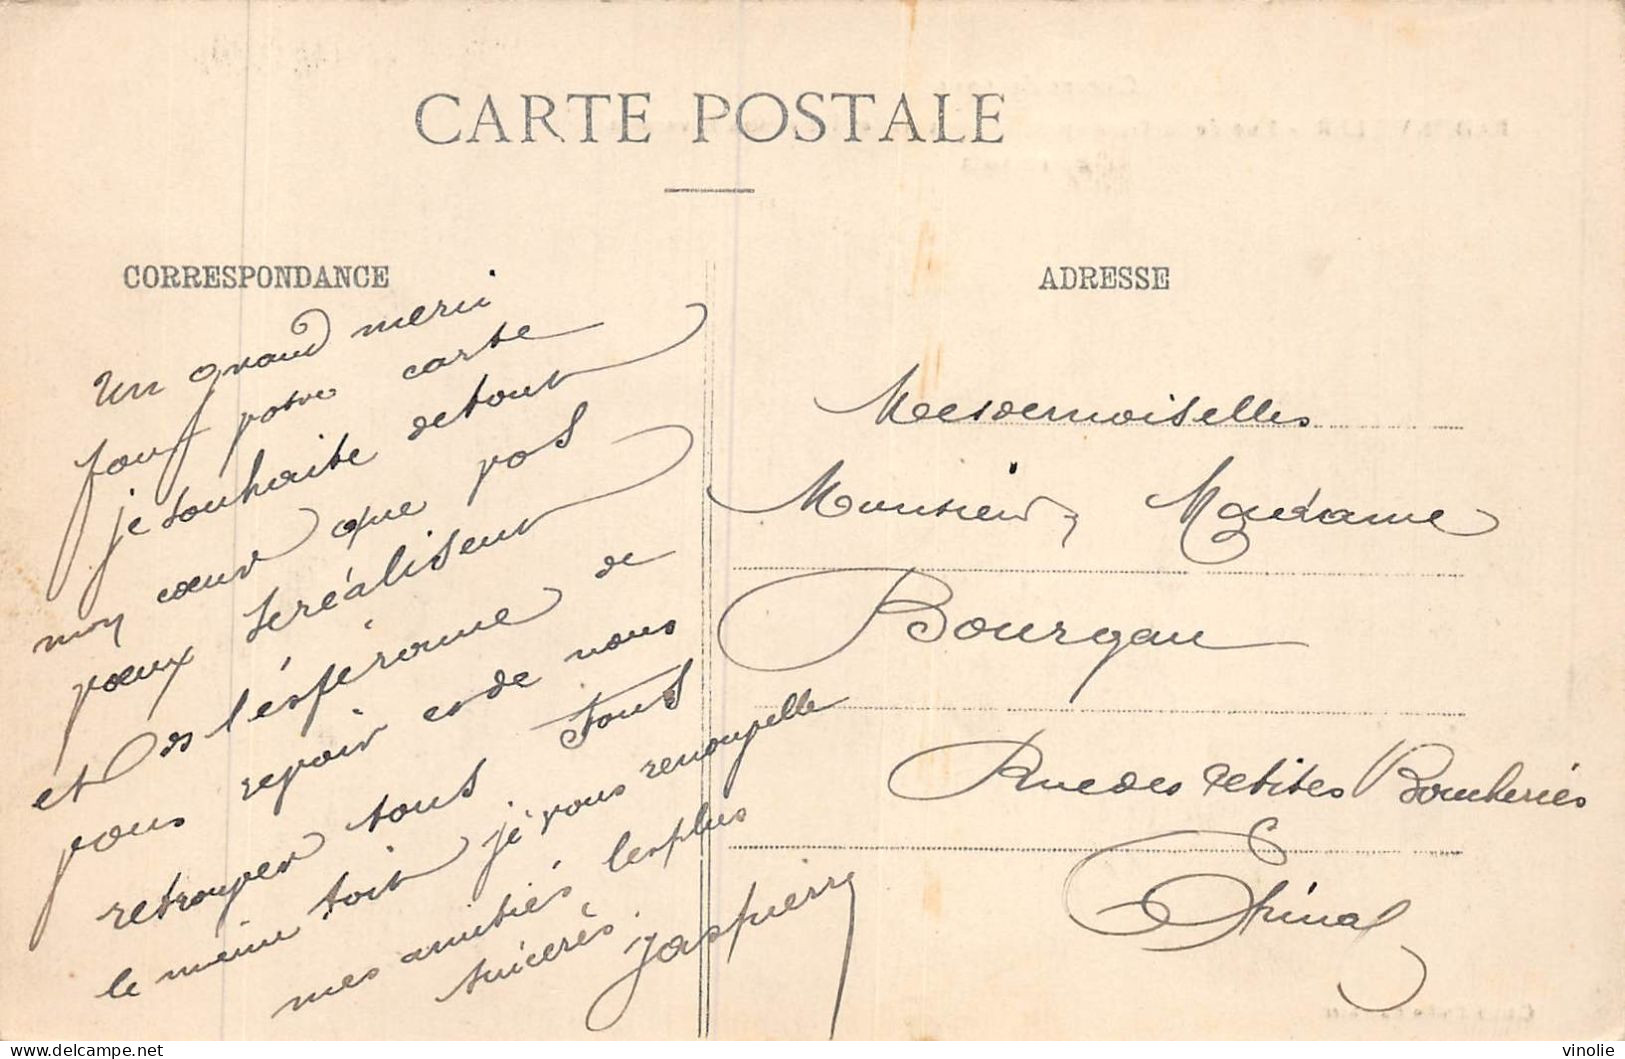 CARTE POSTALE
CORRESPONDANCE
Un grand merci
pour votre carte
je souhaite de tout
mon cœur que vos
vœux se réalisent
et ds l'éspérance de
vous revoir et de nous
retrouver tous tous
le même toit je vous renouvelle
mes amitiés les plus
sincerès.
Jaspierry
ADRESSE
Mesdemoiselles
Monsieur, Madame
Bourgau
Rue des Petites Boucheriès
Épinal
delcampe.net
vinolie